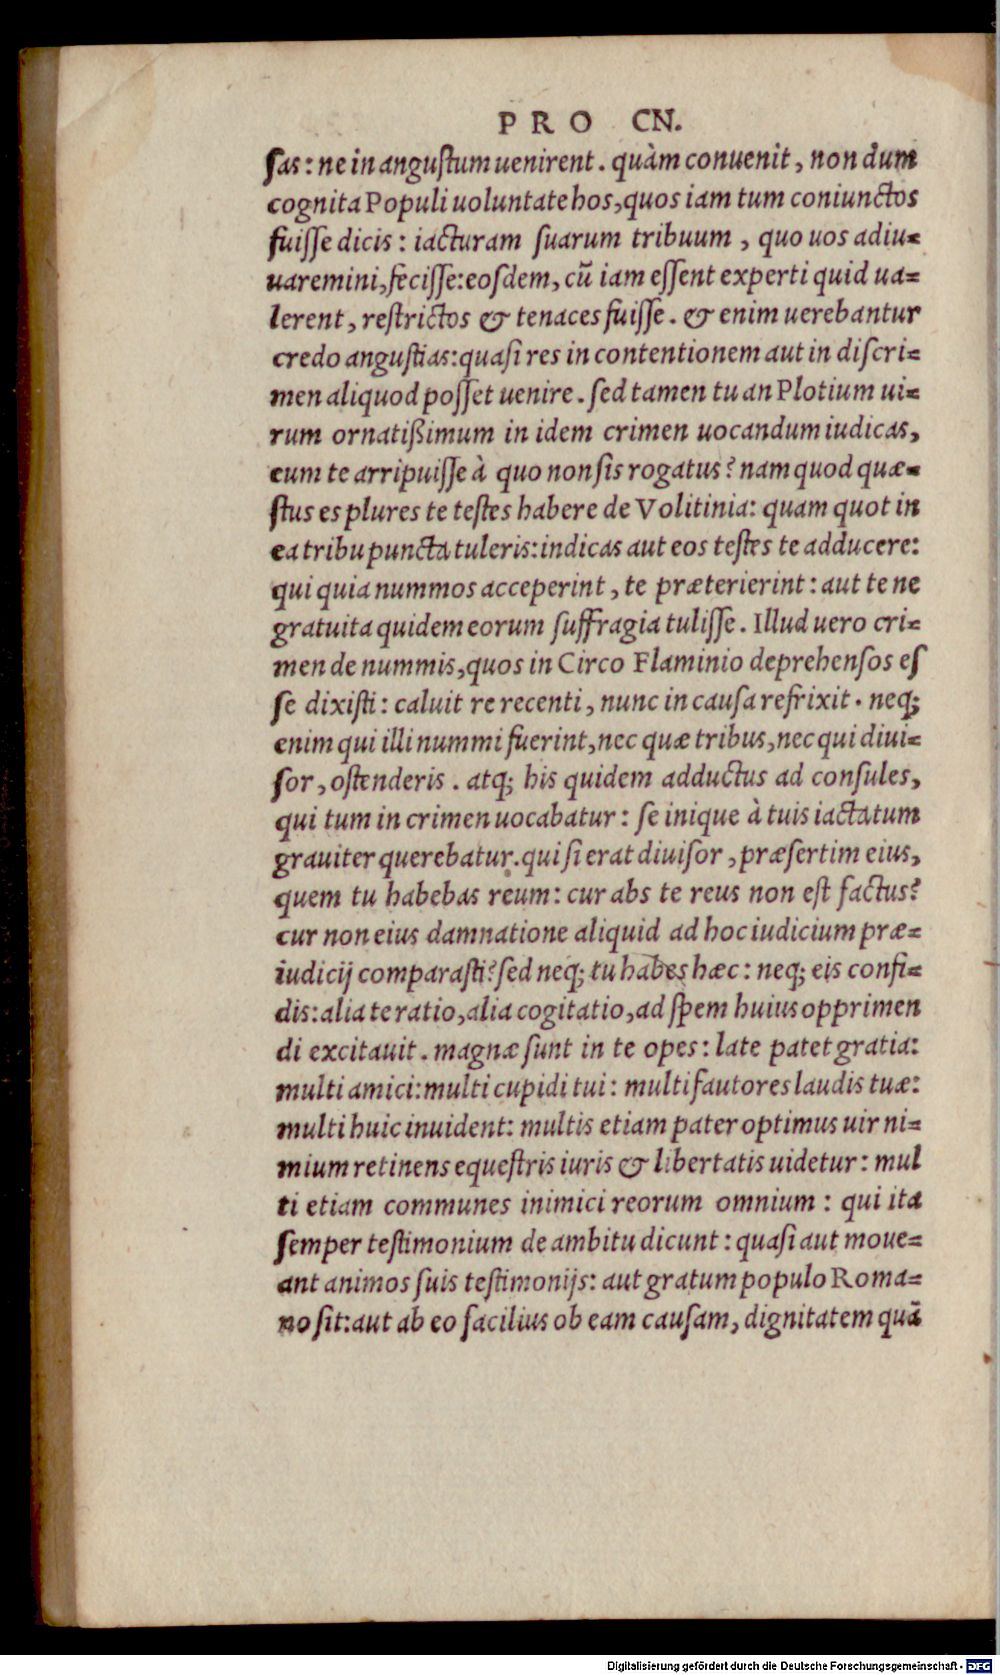 PRO CN.
sas: ne in angustum uenirent. quàm conuenit, non dum
cognita Populi uoluntate hos, quos iam tum coniunctos
fuisse dicis: iacturam suarum tribuum, quo uos adiu-
uaremini, fecisse: eosdem, cū iam essent experti quid ua-
lerent, restrictos & tenaces fuisse. & enim uerebantur
credo angustias: quasi res in contentionem aut in discri-
men aliquod posset uenire. sed tamen tu an Plotium ui-
rum ornatißimum in idem crimen uocandum iudicas,
eum te arripuisse à quo non sis rogatus? nam quod quæ-
stus es plures te testes habere de Volitinia: quam quot in
ea tribu puncta tuleris: indicas aut eos testes te adducere:
qui quia nummos acceperint, te præterierint: aut te ne
gratuita quidem eorum suffragia tulisse. Illud uero cri-
men de nummis, quos in Circo Flaminio deprehensos es
se dixisti: caluit re recenti, nunc in causa refrixit. neq;
enim qui illi nummi fuerint, nec quæ tribus, nec qui diui-
sor, ostenderis. atq; his quidem adductus ad consules,
qui tum in crimen uocabatur: se inique à tuis iactatum
grauiter querebatur. qui si erat diuisor, præsertim eius,
quem tu habebas reum: cur abs te reus non est factus?
cur non eius damnatione aliquid ad hoc iudicium præ-
iudicij comparasti? sed neq; tu habes hæc: neq; eis confi-
dis: alia te ratio, alia cogitatio, ad spem huius opprimen
di excitauit. magnæ sunt in te opes: late patet gratia:
multi amici: multi cupidi tui: multi fautores laudis tuæ:
multi huic inuident: multis etiam pater optimus uir ni-
mium retinens equestris iuris & libertatis uidetur: mul
ti etiam communes inimici reorum omnium: qui ita
semper testimonium de ambitu dicunt: quasi aut moue-
ant animos suis testimonijs: aut gratum populo Roma-
no sit: aut ab eo facilius ob eam causam, dignitatem quā
Digitalisierung gefördert durch die Deutsche Forschungsgemeinschaft - DFG